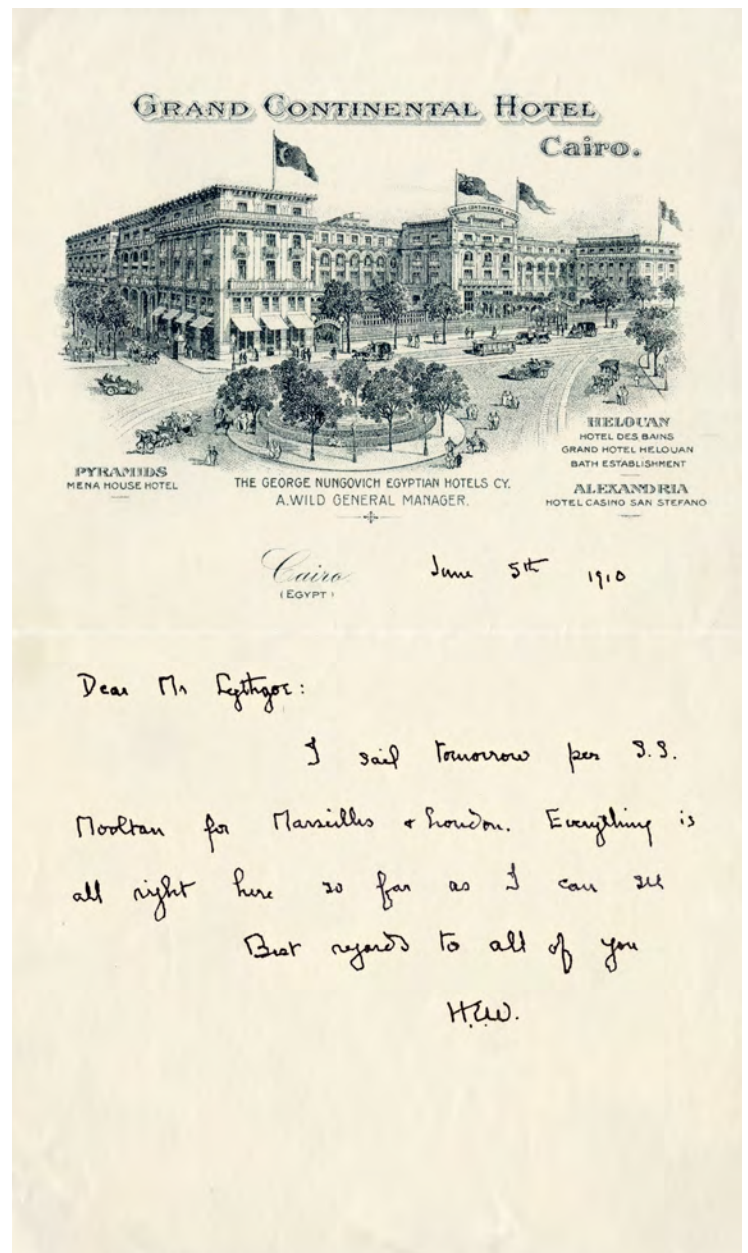 GRAND CONTINENTAL HOTEL
Cairo.
CONTINENTAL HOTEL
PYRAMIDS
MENA HOUSE HOTEL
THE GEORGE NUNGOVICH EGYPTIAN HOTELS CY.
A. WILD GENERAL MANAGER.
HELOUAN
HOTEL DES BAINS
GRAND HOTEL HELOUAN
BATH ESTABLISHMENT
ALEXANDRIA
HOTEL CASINO SAN STEFANO
Cairo
(EGYPT)
June 5th 1910
Dear Mr Lythgoe:
I sail tomorrow per S.S.
Mooltan for Marseilles & London. Everything is
all right here so far as I can see
Best regards to all of you
H.E.W.